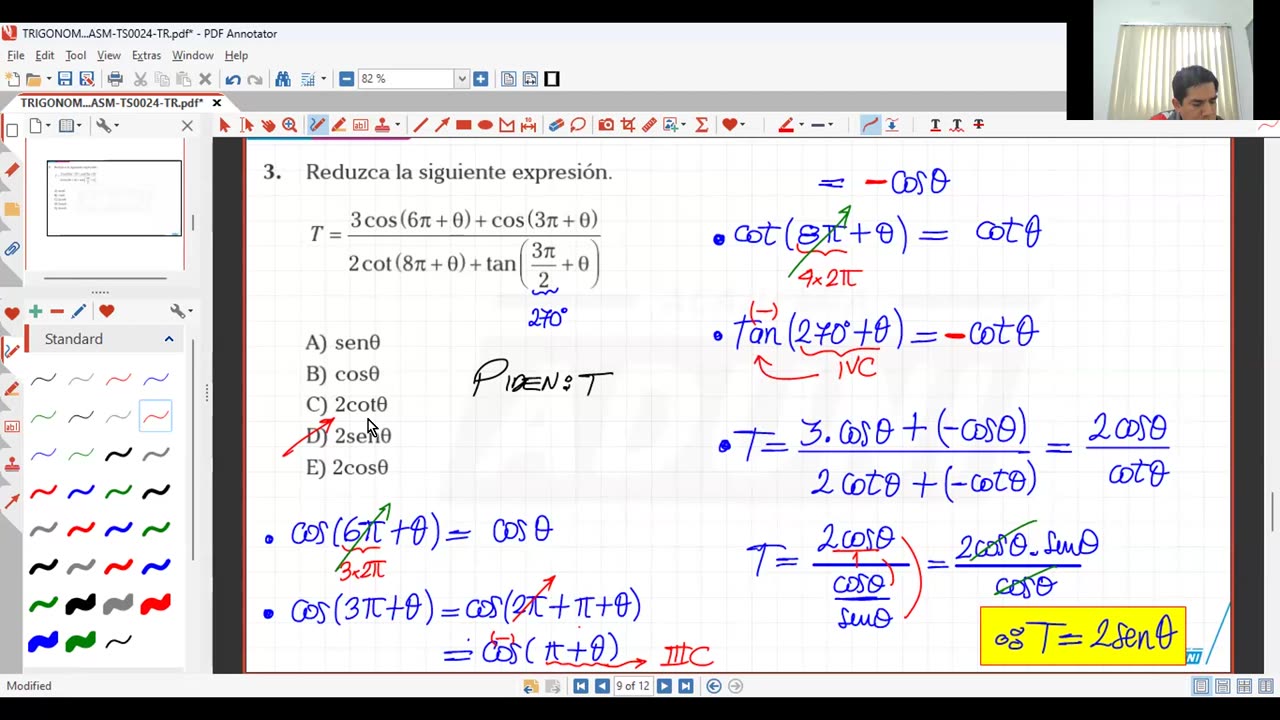 TRIGONOM...ASM-TS0024-TR.pdf* - PDF Annotator
File Edit Tool View Extras Window Help
82 %
TRIGONOM...ASM-TS0024-TR.pdf*
3. Reduzca la siguiente expresión.
T = (3cos(6π + θ) + cos(3π + θ)) / (2cot(8π + θ) + tan(3π/2 + θ))
270°
A) senθ
B) cosθ
C) 2cotθ
D) 2senθ
E) 2cosθ
PIDEN: T
• cos(6π+θ) = cosθ
3×2π
• cos(3π+θ) = cos(2π+π+θ)
(-)
= cos(π+θ) → IIIC
= -cosθ
• cot(8π+θ) = cotθ
4×2π
(-)
• tan(270°+θ) = -cotθ
IVC
• T = (3.cosθ + (-cosθ)) / (2cotθ + (-cotθ)) = 2cosθ / cotθ
T = 2cosθ / (cosθ / senθ) = 2cosθ.senθ / cosθ
∴ T = 2senθ
Standard
Modified
9 of 12